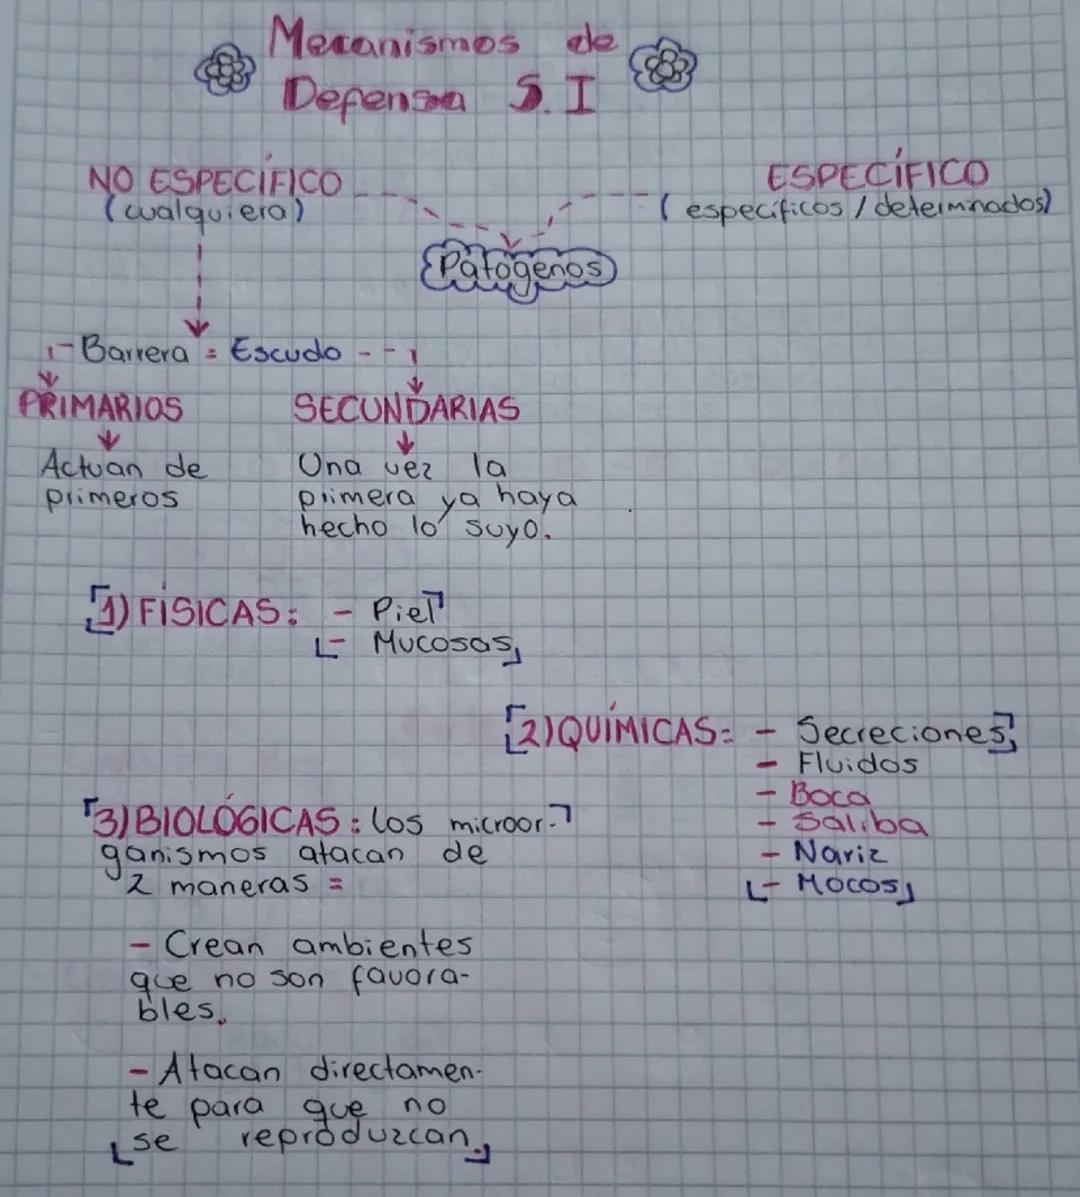 Mecanismos de
Defensa S.I
NO ESPECÍFICO
(cualquiera)
ESPECÍFICO
(específicos / determinados)
Patógenos
- Barrera = Escudo - -
PRIMARIOS
Actúan de
primeros
SECUNDARIAS
Una vez la
primera ya haya
hecho lo suyo.
1) FÍSICAS: - Piel
- Mucosas
2) QUÍMICAS: - Secreciones
- Fluidos
- Boca
- Saliba
- Nariz
- Mocos
3) BIOLÓGICAS: los microor-
ganismos atacan de
2 maneras =
- Crean ambientes
que no son favora-
bles.
- Atacan directamen-
te para que no
se reproduzcan.